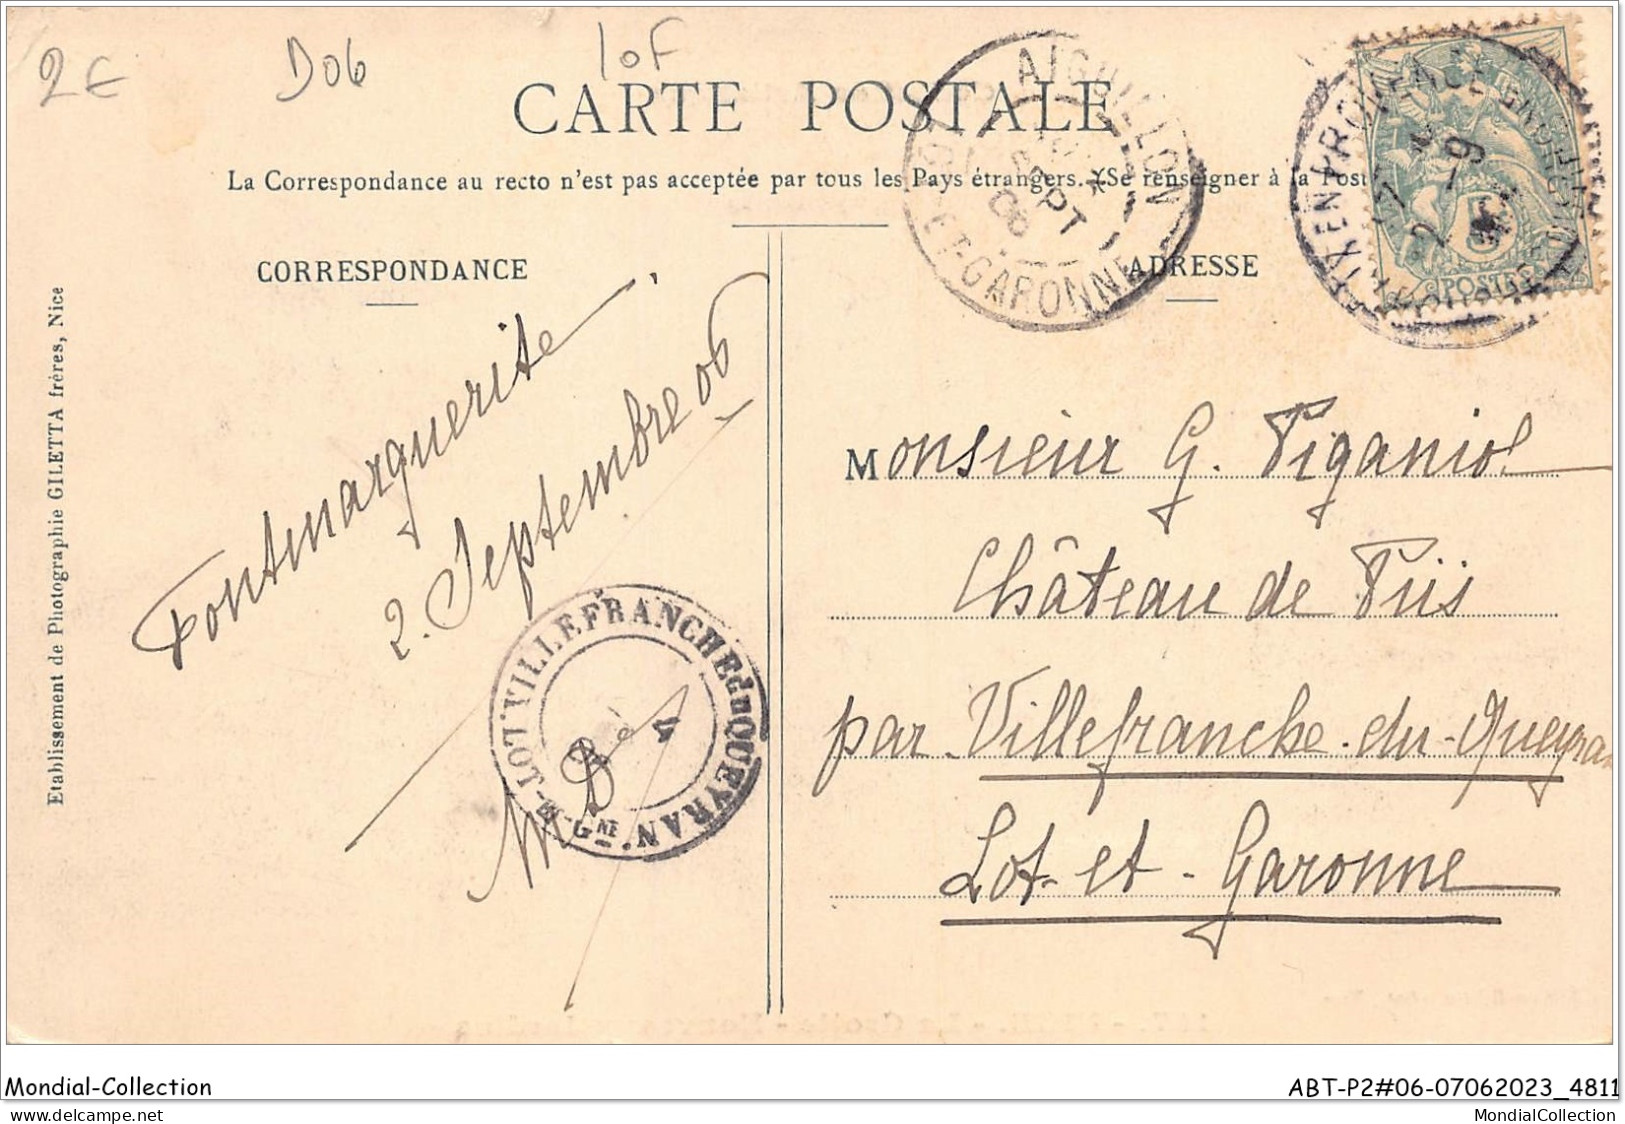 2€
D06
10F
CARTE POSTALE
La Correspondance au recto n'est pas acceptée par tous les Pays étrangers. (Se renseigner à la Post
CORRESPONDANCE
ADRESSE
AIGUILLON
SEPT
06
LOT-ET-GARONNE
AIX EN PROVENCE
2 -9
5
POSTES
Fontmarguerite
2. Septembre 06
Monsieur G. Piganiol
Château de Püs
par Villefranche-du-Queyran
Lot-et-Garonne
VILLEFRANCHE du QUEYRAN
LOT-
Etablissement de Photographie GILETTA frères, Nice
Mondial-Collection
ABT-P2#06-07062023_4811
MondialCollection.txt
MondialCollection